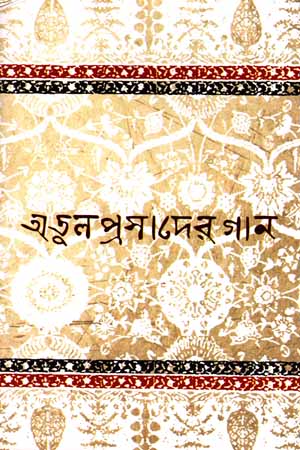 অতুলপ্রসাদের গান